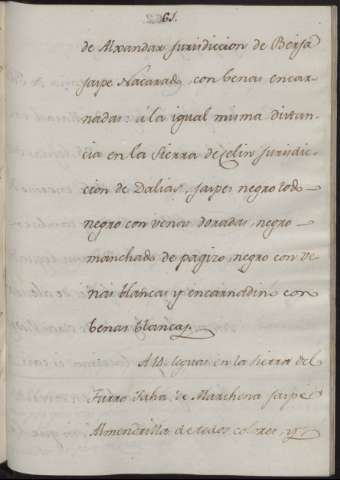 61.
de Alxandar jurisdicion de Berja
jaspe Nacarado, con benas encar-
nadas: á la igual misma distan-
cia en la Sierra de Celin jurisdic-
cion de Dalias, jaspes negro todo
negro con venas doradas, negro
manchado de pagizo, negro con ve-
nas blancas y encarnadin con
benas blancas.
A 14. leguas en la sierra del
Furro Taha de Marchena jaspe
Almendrilla de todos colores, y